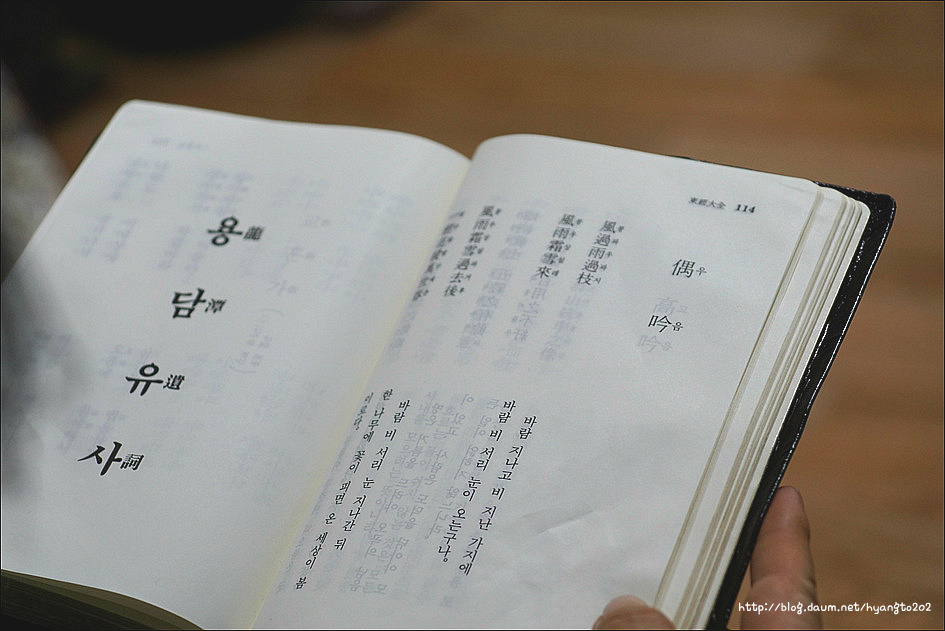 東經大全 114
偶우 吟음
風풍過과雨우過과枝지
風풍雨우霜상雪설來래
風풍雨우霜상雪설過과去거後후
바람 지나고 비 지난 가지에
바람 비 서리 눈이 오는구나
바람 비 서리 눈 지나간 뒤
한 나무에 꽃이 피면 온 세상이 봄
용龍
담潭
유遺
사詞
http://blog.daum.net/hyangto202